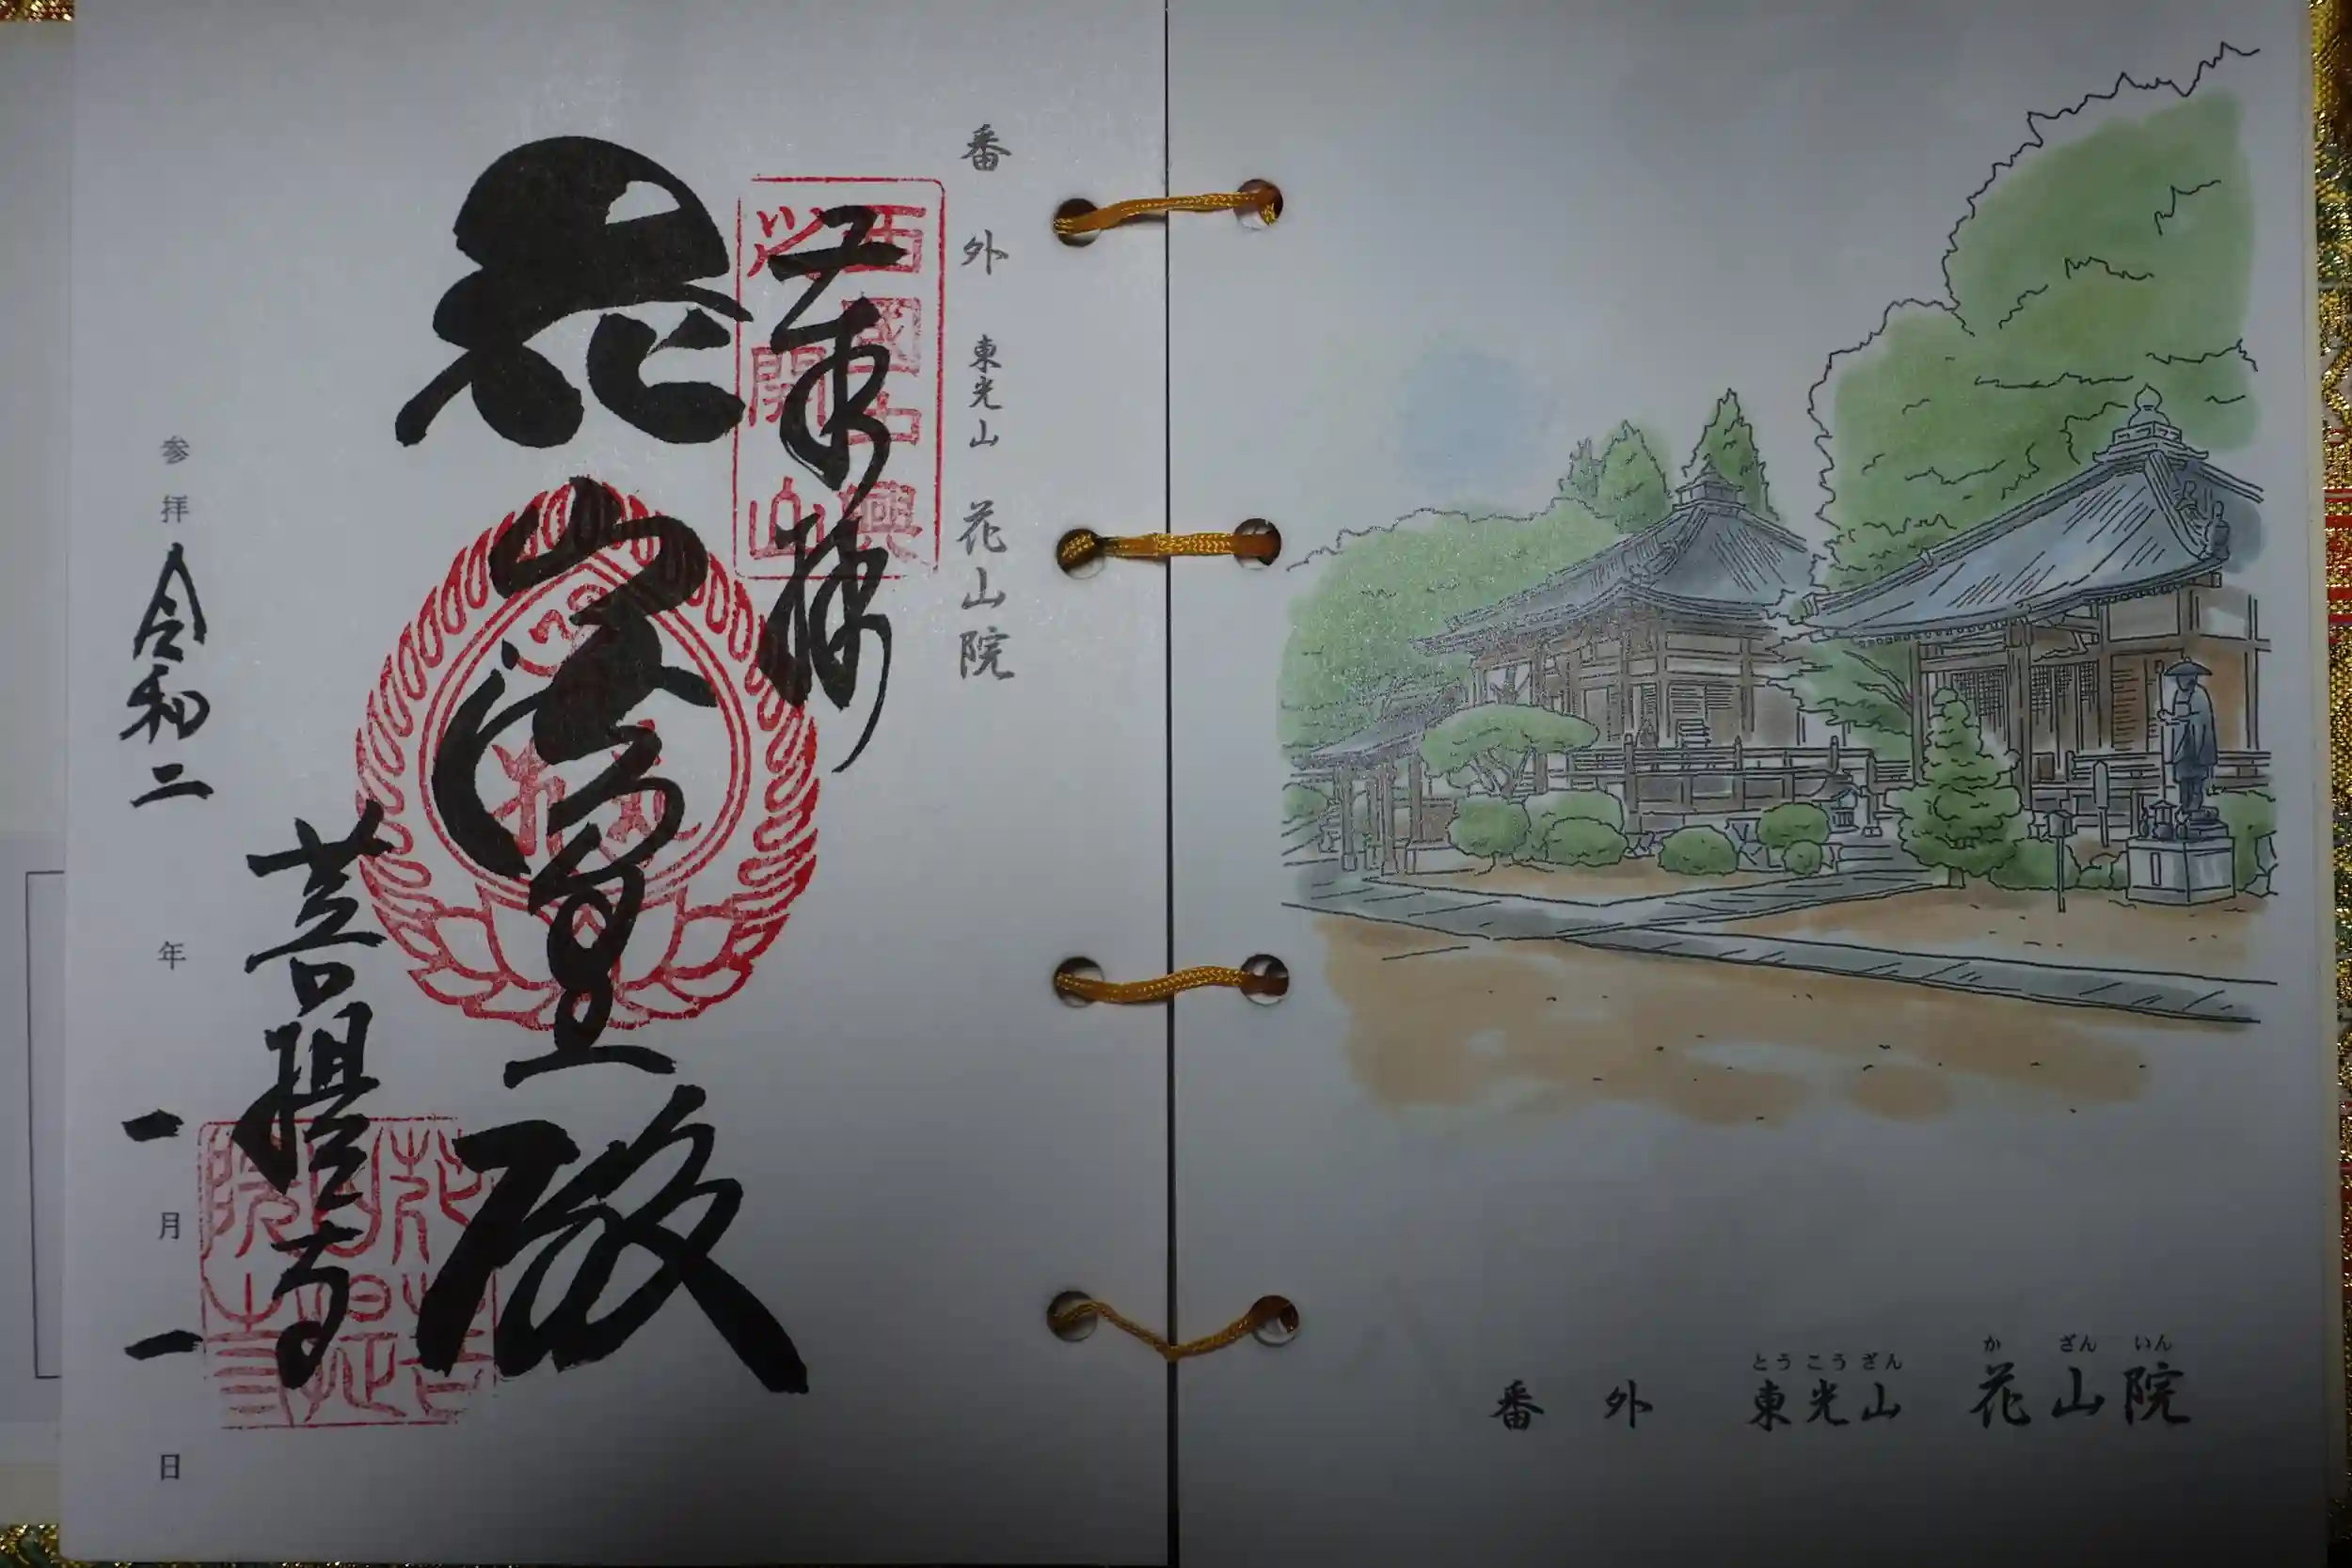 番外 東光山 花山院
奉拝
西國中興
花山法皇殿
菩提寺
花山院
菩提寺
参拝 令和二年一月一日
とうこうざん かざんいん
番外 東光山 花山院